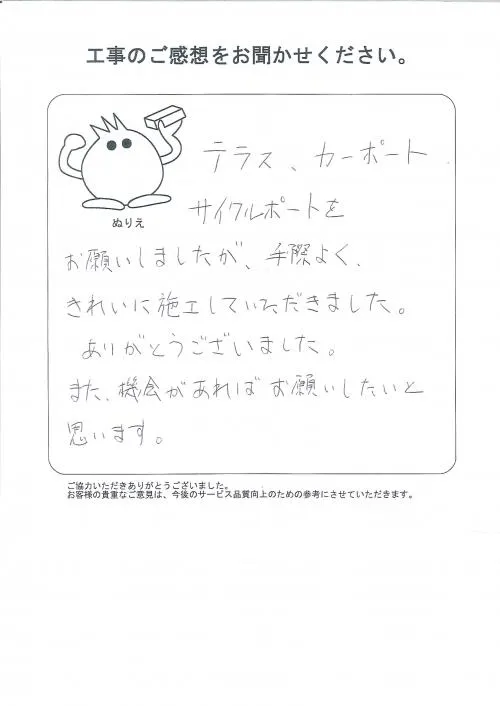 工事のご感想をお聞かせください。
ぬりえ
テラス、カーポート
サイクルポートを
お願いしましたが、手際よく、
きれいに施工していただきました。
ありがとうございました。
また、機会があればお願いしたいと
思います。
ご協力いただきありがとうございました。
お客様の貴重なご意見は、今後のサービス品質向上のための参考にさせていただきます。